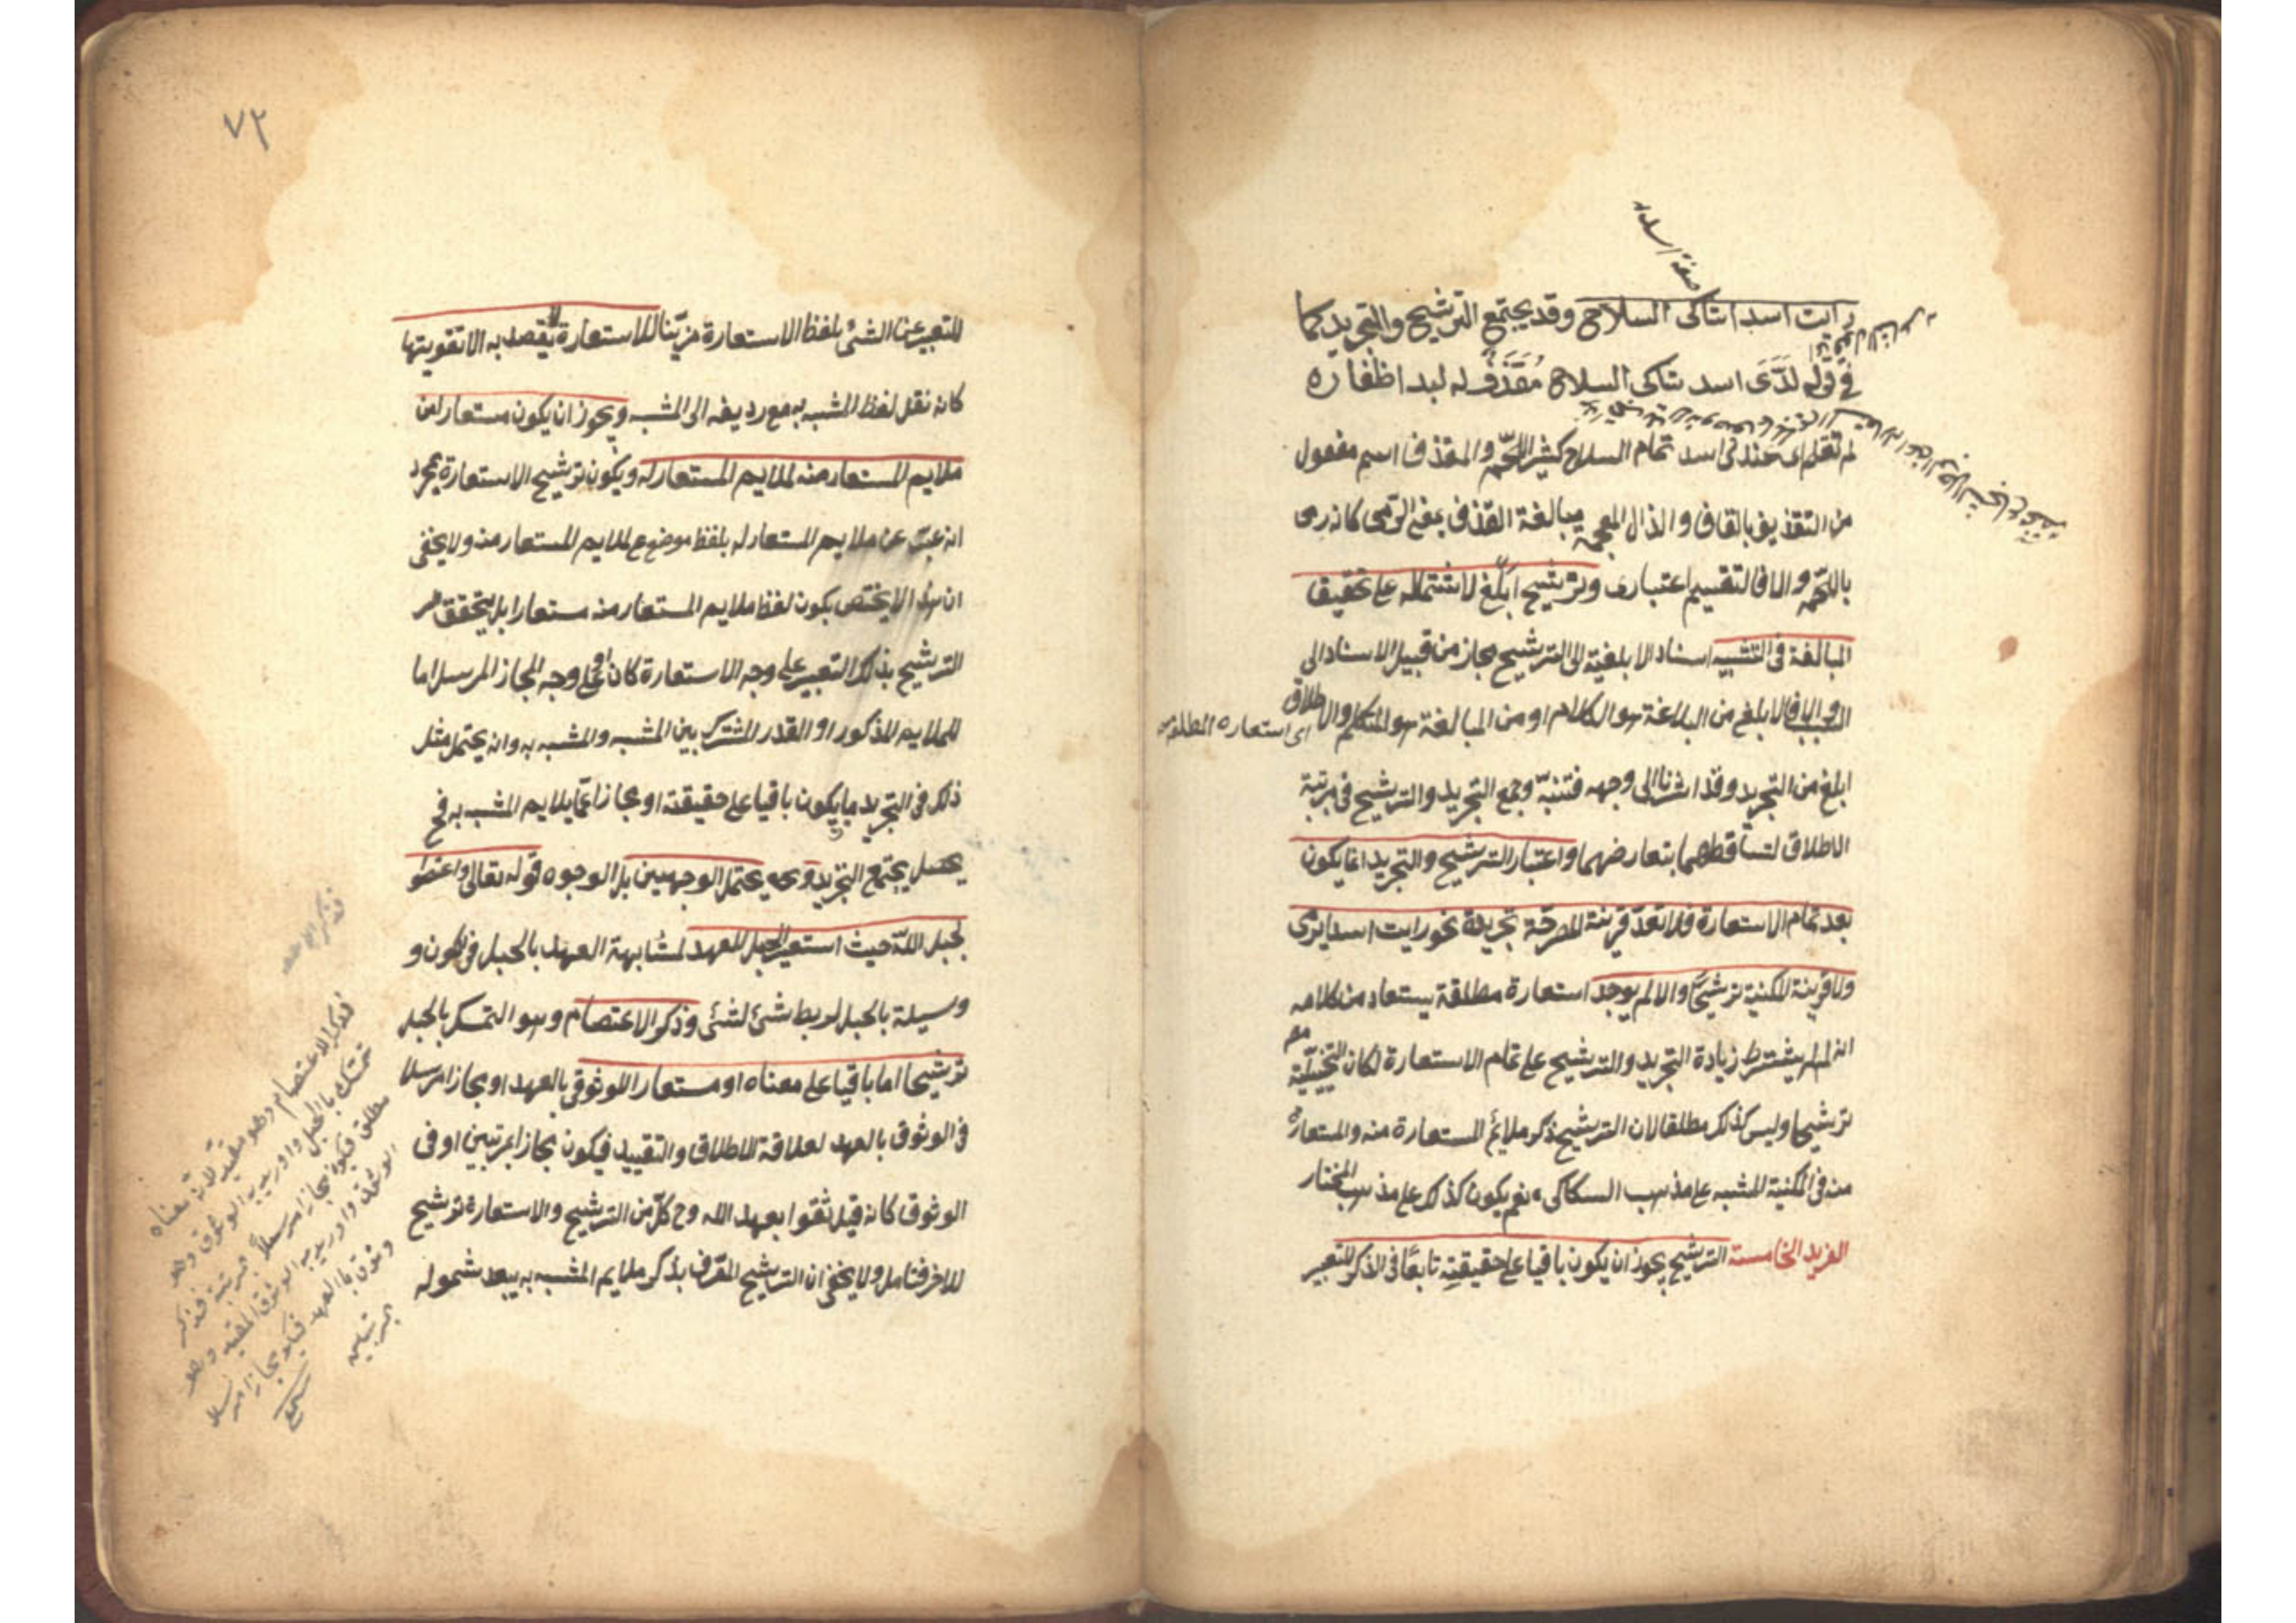 رايت اسدا شاكى السلاح وقد يجتمع الترشيح والتجريد كما
فى قوله لدى اسد شاكى السلاح مقذف له لبد اظفاره
لم تقلم اى عند اسد تمام السلاح كثير اللحم والمقذف اسم مفعول
من التقذيف بالقاف والذال المعجمة مبالغة القذف بمعنى الرمى كانه رمى
باللحم والا فالتقسيم اعتبارى والترشيح ابلغ لاشتماله على تحقيق
المبالغة فى التشبيه اسناد الابلغية الى الترشيح مجاز من قبيل الاسناد الى
السبب والا فالابلغ من البلاغة هو الكلام او من المبالغة هو المتكلم والاطلاق
اى استعاره المطلقة
ابلغ من التجريد وقد اشرنا الى وجهه فتنبه وجمع التجريد والترشيح فى مرتبة
الاطلاق لتساقطهما بتعارضهما واعتبار الترشيح والتجريد انما يكون
بعد تمام الاستعارة فلا تعد قرينة المصرحة تجريدا نحو رايت اسدا يرمى
ولا قرينة المكنية ترشيحا والا لم يوجد استعارة مطلقة يستفاد من كلامه
انه لو لم يشترط زيادة التجريد والترشيح على تمام الاستعارة لكان التخييلية
ترشيحا وليس كذلك مطلقا لان الترشيح ذكر ملائم المستعارة منه والمستعار
منه فى المكنية المشبه على مذهب السكاكى نعم يكون كذلك على مذهب المختار
الفريد الخامسة الترشيح يجوز ان يكون باقيا على حقيقته تابعا فى الذكر للتعبير
٧٢
للتعبير عن الشئ بلفظ الاستعارة مزينا للاستعارة لا يقصد به الا تقويتها
كانه نقل لفظ المشبه به مع رديفه الى المشبه ويجوز ان يكون مستعارا من
ملايم المستعار منه لملايم المستعار له ويكون ترشيح الاستعارة بمجرد
انه عبر عن ملايم المستعار له بلفظ موضوع لملايم المستعار منه ولا يخفى
ان هذا لا يختص بكون لفظ ملايم المستعار منه مستعارا بل يتحقق
الترشيح بذلك التعبير على وجه الاستعارة كان او على وجه المجاز المرسل اما
للملايم المذكور او القدر المشترك بين المشبه والمشبه به وانه يحتمل مثل
ذلك فى التجريد بما يكون باقيا على حقيقته او مجازا عما يلايم المشبه به فح
يحتمل الوجهين بل الوجوه قوله تعالى واعتصموا
بحبل الله حيث استعير الحبل للعهد لمشابهة العهد بالحبل فى كون و
وسيلة بالحبل لربط شئ لشئ وذكر الاعتصام وهو التمسك بالحبل
ترشيحا اما باقيا على معناه او مستعارا للوثوق بالعهد او مجازا مرسلا
فى الوثوق بالعهد لعلاقة الاطلاق والتقييد فيكون مجازا بمرتبين او فى
الوثوق كانه قيل ثقوا بعهد الله وح كل من الترشيح والاستعارة ترشيح
للاخر فتامل ولا يخفى ان الترشيح المعرف بذكر ملايم المشبه به يبعد شموله
فذكر الاعتصام وهو مقيد لان معناه
تمسك بالحبل واريد به الوثوق وهو
مطلق فيكون مجازا مرسلا بمرتبة فذكر
الوثوق واريد به الوثوق المقيد وهو
وثوق بالعهد فيكون مجازا مرسلا
بمرتبين